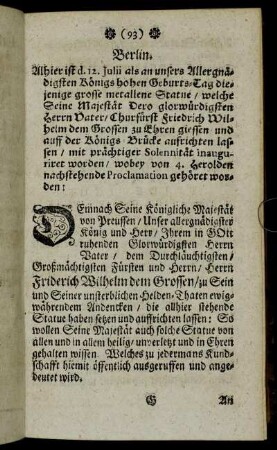 (93)
Berlin.
Alhier ist d. 12. Julii als an unsers Allergnä-
digsten Königs hohen Geburts-Tag die-
jenige grosse metallene Statue / welche
Seine Majestät Dero glorwürdigsten
Herrn Vater / Churfürst Friedrich Wil-
helm dem Grossen zu Ehren giessen und
auff der Königs Brücke aufrichten las-
sen / mit prächtiger Solennität inaugu-
riret worden / wobey von 4. Herolden
nachstehende Proclamation gehöret wor-
den:
DEmnach Seine Königliche Majestät
von Preussen / Unser allergnädigster
König und Herr / Ihrem in GOtt
ruhenden Glorwürdigsten Herrn
Vater / dem Durchläuchtigsten /
Großmächtigsten Fürsten und Herrn / Herrn
Friderich Wilhelm dem Grossen / zu Sein
und Seiner unsterblichen Helden-Thaten ewig-
währendem Andencken / die allhier stehende
Statue haben setzen und auffrichten lassen: So
wollen Seine Majestät auch solche Statue von
allen und in allem heilig / unverletzt und in Ehren
gehalten wissen. Welches zu jedermans Kund-
schafft hiemit öffentlich ausgeruffen und ange-
deutet wird.
G An